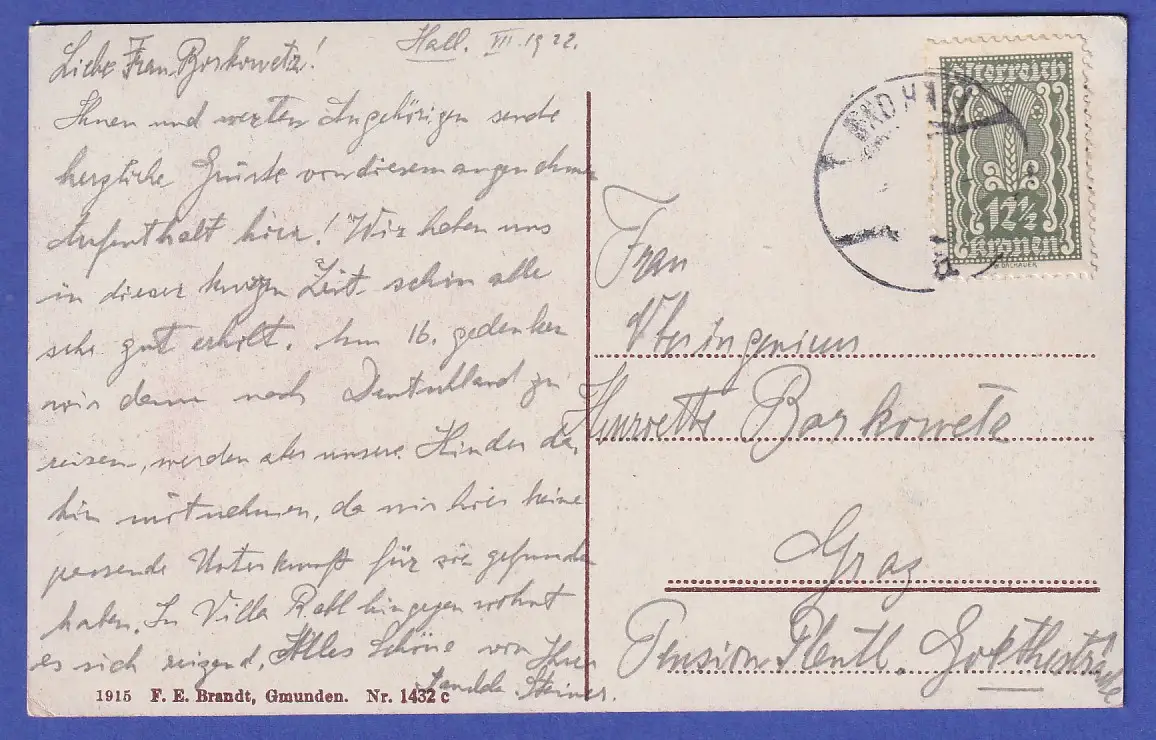 Hall. VII. 1922.
Liebe Frau Borkowetz!
Ihnen und werten Angehörigen sende
herzliche Grüße von diesem angenehmen
Aufenthalt hier! Wir haben uns
in dieser kurzen Zeit schon alle
sehr gut erholt. Am 16. gedenken
wir dann nach Deutschland zu
reisen, werden aber unsere Kinder da
hin mitnehmen, da wir hier keine
passende Unterkunft für sie gefunden
haben. In Villa Rabl hingegen wohnt
es sich reizend. Alles Schöne von Ihrer
Steiner.
1915 F. E. Brandt, Gmunden. Nr. 1432 c
BAD HALL
Österreich
12½
Kronen
W. DACHAUER
Frau
Oberingenieur
Henriette Borkowetz
Graz
Pension Plentl. Goethestraße